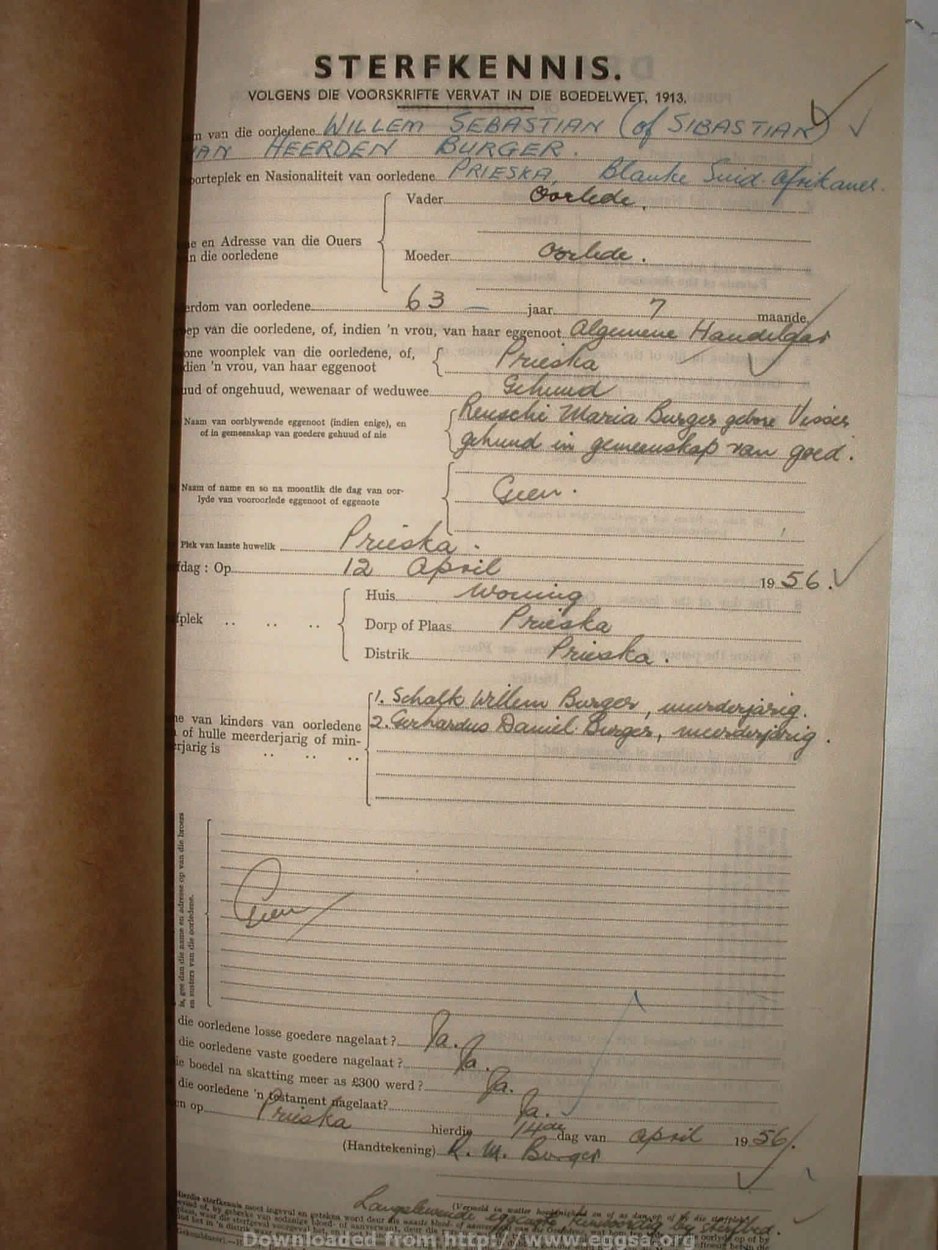 STERFKENNIS.
VOLGENS DIE VOORSKRIFTE VERVAT IN DIE BOEDELWET, 1913.
m van die oorledene WILLEM SEBASTIAN (of SIBASTIAN)
VAN HEERDEN BURGER.
oorteplek en Nasionaliteit van oorledene PRIESKA, Blanke Suid-Afrikaner.
Vader Oorlede.
e en Adresse van die Ouers
n die oorledene
Moeder Oorlede.
erdom van oorledene 63 — jaar 7 maande
ep van die oorledene, of, indien 'n vrou, van haar eggenoot Algemene Handelaar
one woonplek van die oorledene, of,
dien 'n vrou, van haar eggenoot Prieska
ud of ongehuud, wewenaar of weduwee Gehuud
Naam van oorblywende eggenoot (indien enige), en
of in gemeenskap van goedere gehuud of nie
Maria Burger gebore Visser
gehuud in gemeenskap van goed.
Naam of name en so na moontlik die dag van oor-
lyde van vooroorlede eggenoot of eggenote
Geen.
Plek van laaste huwelik Prieska.
fdag : Op 12 April 1956.
Huis Woning
fplek .. .. .. Dorp of Plaas Prieska
Distrik Prieska.
1. Schalk Willem Burger, meerderjarig.
2. Gerhardus Daniel Burger, meerderjarig.
ne van kinders van oorledene
of hulle meerderjarig of min-
erjarig is .. .. ..
is, gee dan die name en adresse op van die broers
en susters van die oorledene.
Geen
die oorledene losse goedere nagelaat ? Ja.
die oorledene vaste goedere nagelaat ? Ja.
ie boedel na skatting meer as £300 werd ? Ja.
die oorledene 'n testament nagelaat? Ja.
en op Prieska hierdie 14de dag van April 1956.
(Handtekening) R. M. Burger
(Vermeld in watter hoedanigheid en of as dan op of by die sterfbed
Langslewende eggenote teenwoordig by sterfbed.
Downloaded from http://www.eggsa.org